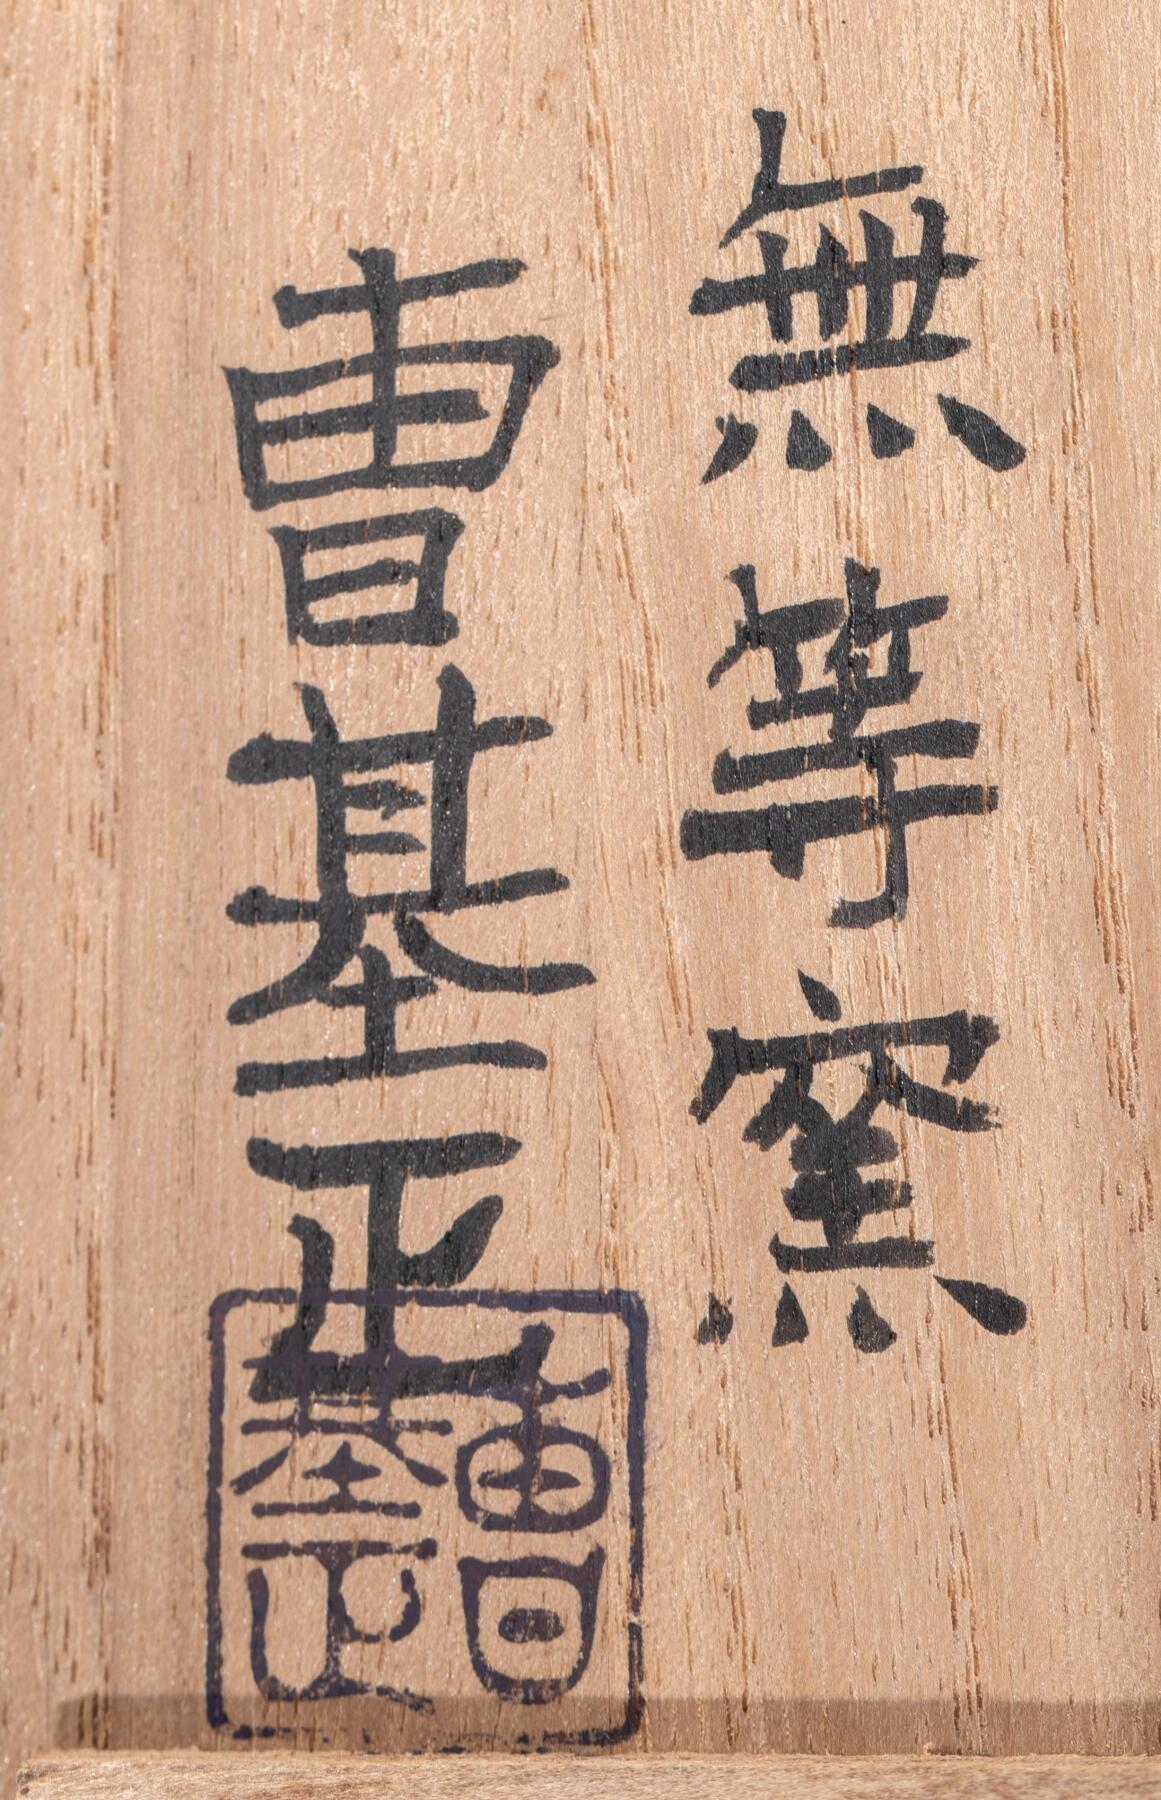 無等窯
曺基正
曺基正